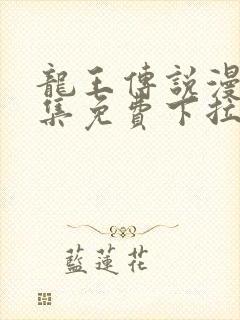 龍王傳說漫
集免費下拉
藍蓮花